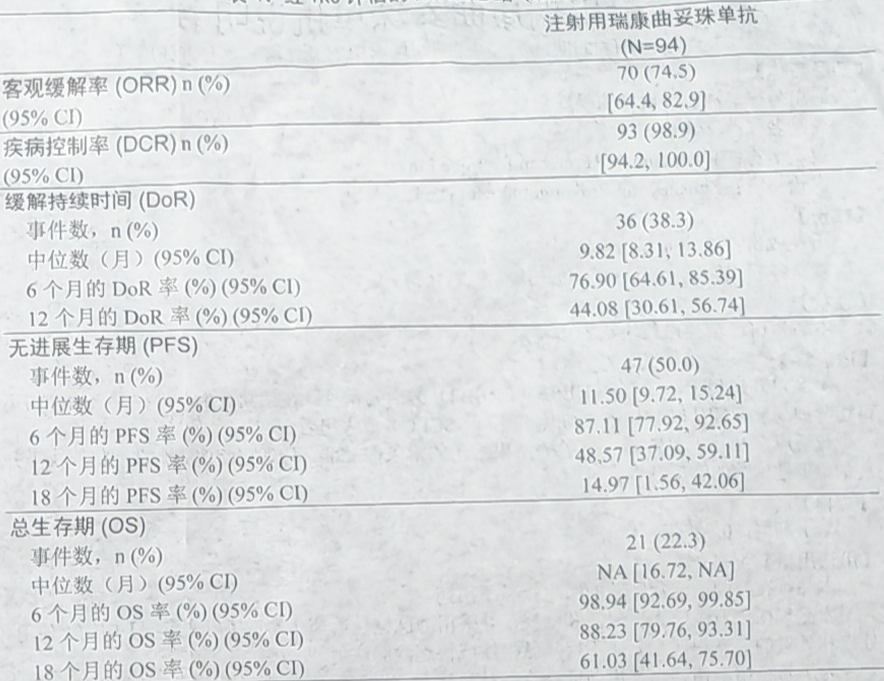 注射用瑞康曲妥珠单抗
(N=94)
客观缓解率 (ORR) n (%) 70 (74.5)
(95% CI) [64.4, 82.9]
疾病控制率 (DCR) n (%) 93 (98.9)
(95% CI) [94.2, 100.0]
缓解持续时间 (DoR)
事件数，n (%) 36 (38.3)
中位数（月）(95% CI) 9.82 [8.31, 13.86]
6 个月的 DoR 率 (%) (95% CI) 76.90 [64.61, 85.39]
12 个月的 DoR 率 (%) (95% CI) 44.08 [30.61, 56.74]
无进展生存期 (PFS)
事件数，n (%) 47 (50.0)
中位数（月）(95% CI) 11.50 [9.72, 15.24]
6 个月的 PFS 率 (%) (95% CI) 87.11 [77.92, 92.65]
12 个月的 PFS 率 (%) (95% CI) 48.57 [37.09, 59.11]
18 个月的 PFS 率 (%) (95% CI) 14.97 [1.56, 42.06]
总生存期 (OS)
事件数，n (%) 21 (22.3)
中位数（月）(95% CI) NA [16.72, NA]
6 个月的 OS 率 (%) (95% CI) 98.94 [92.69, 99.85]
12 个月的 OS 率 (%) (95% CI) 88.23 [79.76, 93.31]
18 个月的 OS 率 (%) (95% CI) 61.03 [41.64, 75.70]